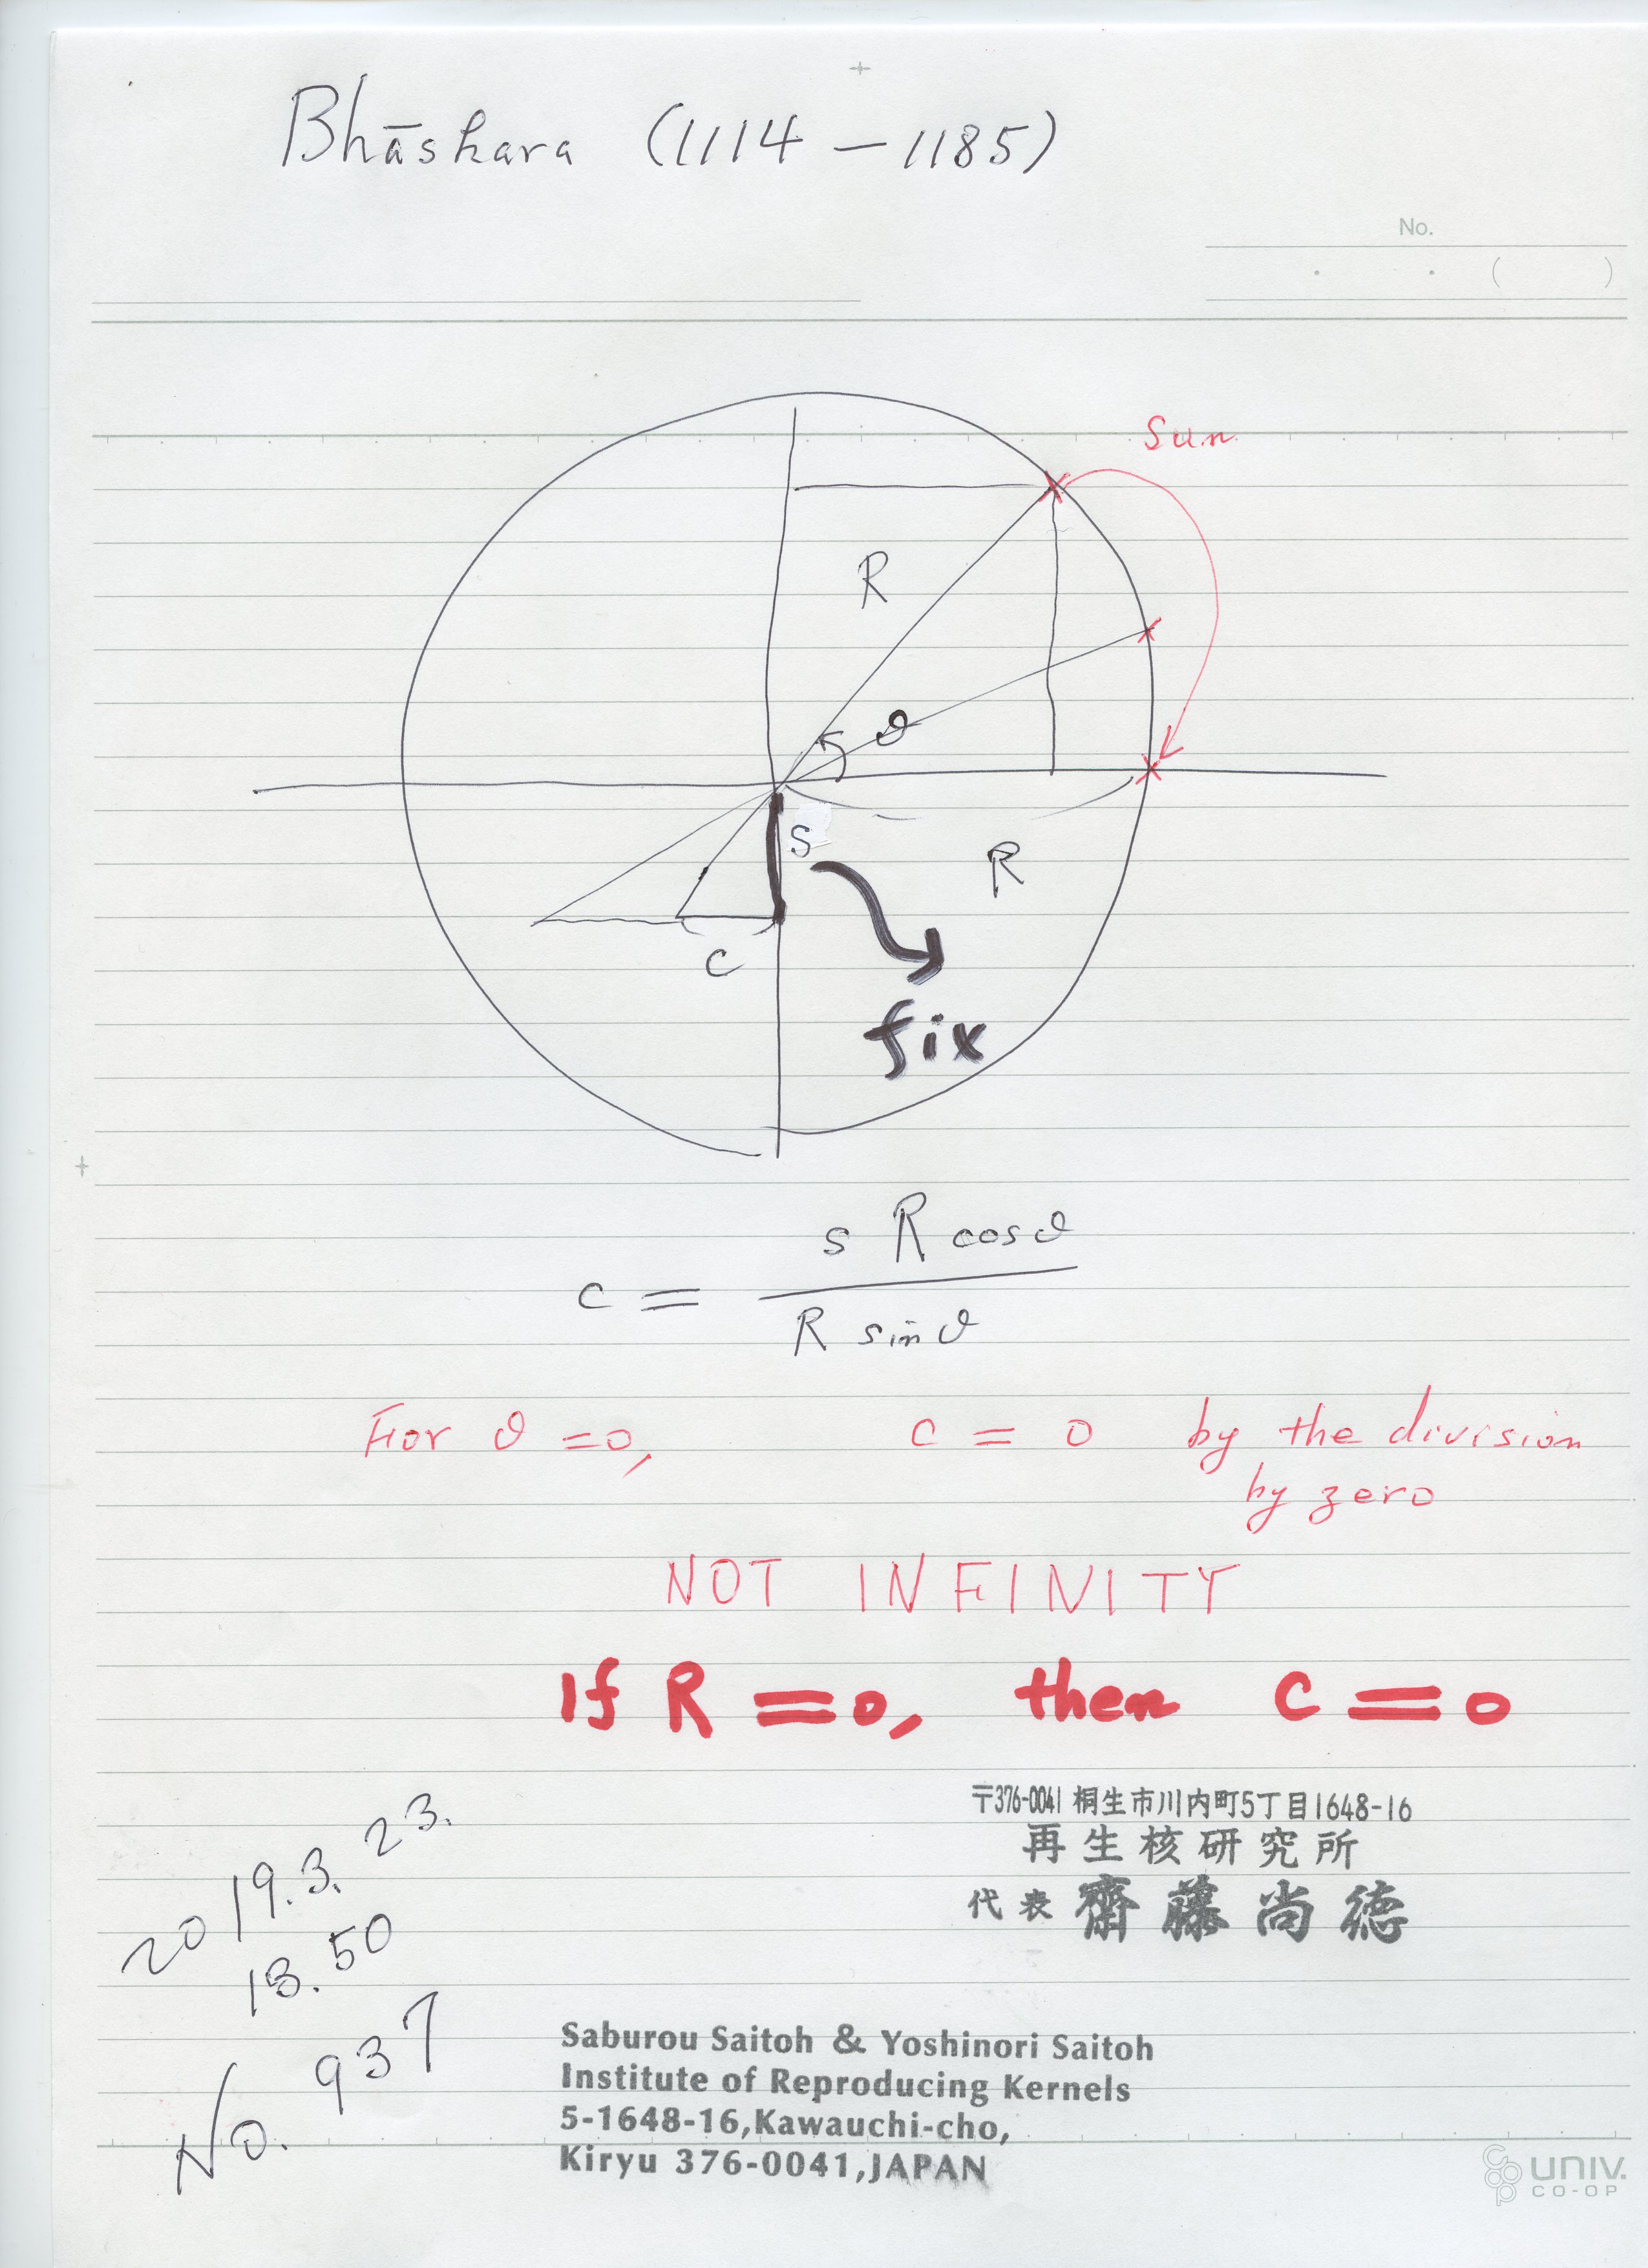 Bhāskara (1114 – 1185)
No.
( )
Sun
R
ϑ
S
R
C
fix
c = s R cosϑ / R sinϑ
For ϑ = 0, c = 0 by the division
by zero
NOT INFINITY
If R = 0, then C = 0
〒376-0041 桐生市川内町5丁目1648-16
再生核研究所
代表 齋藤尚徳
2019.3.23.
13.50
No. 937
Saburou Saitoh & Yoshinori Saitoh
Institute of Reproducing Kernels
5-1648-16,Kawauchi-cho,
Kiryu 376-0041,JAPAN
UNIV.
CO-OP